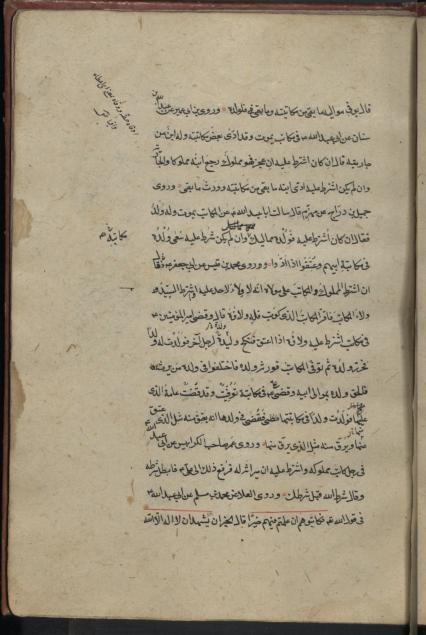 قال يوفى مواليه ما بقى من مكاتبته وما بقى فلولده وروى ابن ابى عمير عن عبد الله بن
سنان عن ابى عبد الله ع فى مكاتب يموت وقد ادى بعض مكاتبته وله ابن من
جاريته قال ان كان اشترط عليه ان عجز فهو مملوك رجع ابنه مملوكا والجارية
وان لم يكن اشترط عليه ادى ابنه ما بقى من مكاتبته وورث ما بقى وروى
جميل بن دراج عن مهزم قال سالت ابا عبد الله ع عن المكاتب يموت وله ولد
فقال ان كان اشترط عليه فولده مماليك وان لم يكن شرط عليه سعى ولده
فى مكاتبة ابيهم وعتقوا اذا ادوا وروى محمد بن قيس عن ابى جعفر ع قال
ان اشترط المملوك المكاتب على مولاه انه لا ولاء لاحد عليه او اشترط السيد
ولاء المكاتب فاقر المكاتب الذى كوتب فله ولاؤه قال وقضى امير المؤمنين ع
فى مكاتب اشترط عليه ولاؤه اذا اعتق فنكح وليدة لرجل آخر فولدت له ولدا
فحرر ولده ثم توفى المكاتب فورثه ولده فاختلفوا فى ولده من يرثه
فالحق ولده بموالى ابيه وقضى ع فى مكاتبة توفيت وقد قضت عامة الذى
عليها فولدت ولدا فى مكاتبتها فقضى فى ولدها انه يعتق منه مثل الذى عتق
منها ويرق منه مثل الذى يرق منها وروى عمر صاحب الكرابيس عن ابى عبد الله
فى رجل كاتب مملوكه واشترط عليه ان ميراثه له فرفع ذلك الى على ع فابطل شرطه
وقال شرط الله قبل شرطك وروى العلاء عن محمد بن مسلم عن ابى عبد الله ع
فى قول الله عز فكاتبوهم ان علمتم فيهم خيرا قال الخير ان يشهد ان لا اله الا الله
مكاتبة